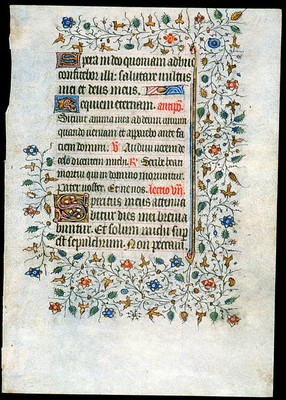 Spera in deo quoniam adhuc
confitebor illi: salutare vultus
mei et deus meus.
Requiem eternam. antipho.
Sitivit anima mea ad deum vivum
quando veniam et apparebo ante faci
em domini. V. Audivi vocem de
celo dicentem michi. R. Scribe beati
mortui qui in domino moriuntur.
Pater noster. Et ne nos. lectio vii.
Spiritus meus attenua
bitur dies mei brevia
buntur. Et solum michi sup
est sepulchrum. Non peccavi